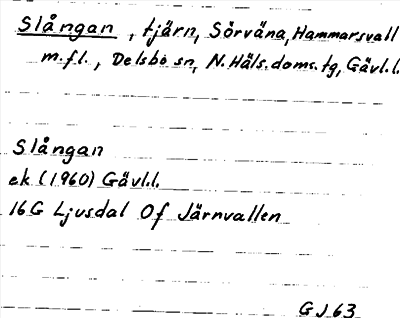 Slångan, tjärn, Sörväna, Hammarsvall
m.fl., Delsbo sn, N.Häls.doms.tg, Gävl.l.
Slångan
ek (1960) Gävl.l.
16G Ljusdal Of Järnvallen
GJ 63